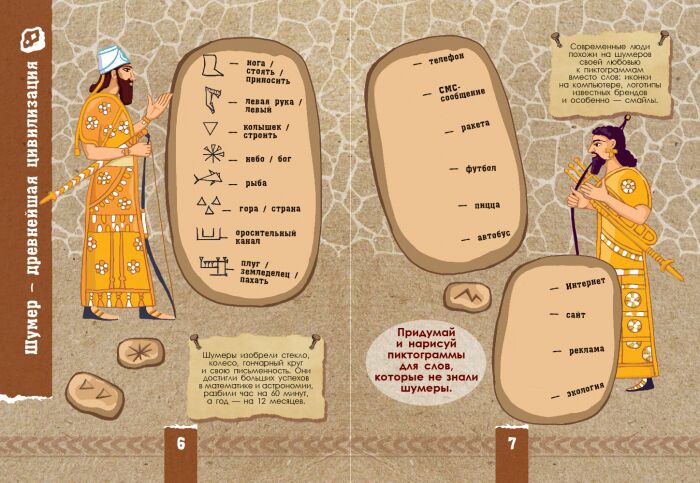 Шумер – древнейшая цивилизация
— нога /
стоять /
приносить
— левая рука /
левый
— колышек /
строить
— небо / бог
— рыба
— гора / страна
оросительный
канал
— плуг /
земледелец /
пахать
Шумеры изобрели стекло,
колесо, гончарный круг
и свою письменность. Они
достигли больших успехов
в математике и астрономии,
разбили час на 60 минут,
а год — на 12 месяцев.
6
— телефон
— СМС-
сообщение
— ракета
— футбол
— пицца
— автобус
Современные люди
похожи на шумеров
своей любовью
к пиктограммам
вместо слов: иконки
на компьютере, логотипы
известных брендов
и особенно — смайлы.
Придумай
и нарисуй
пиктограммы
для слов,
которые не знали
шумеры.
— Интернет
— сайт
— реклама
— экология
7